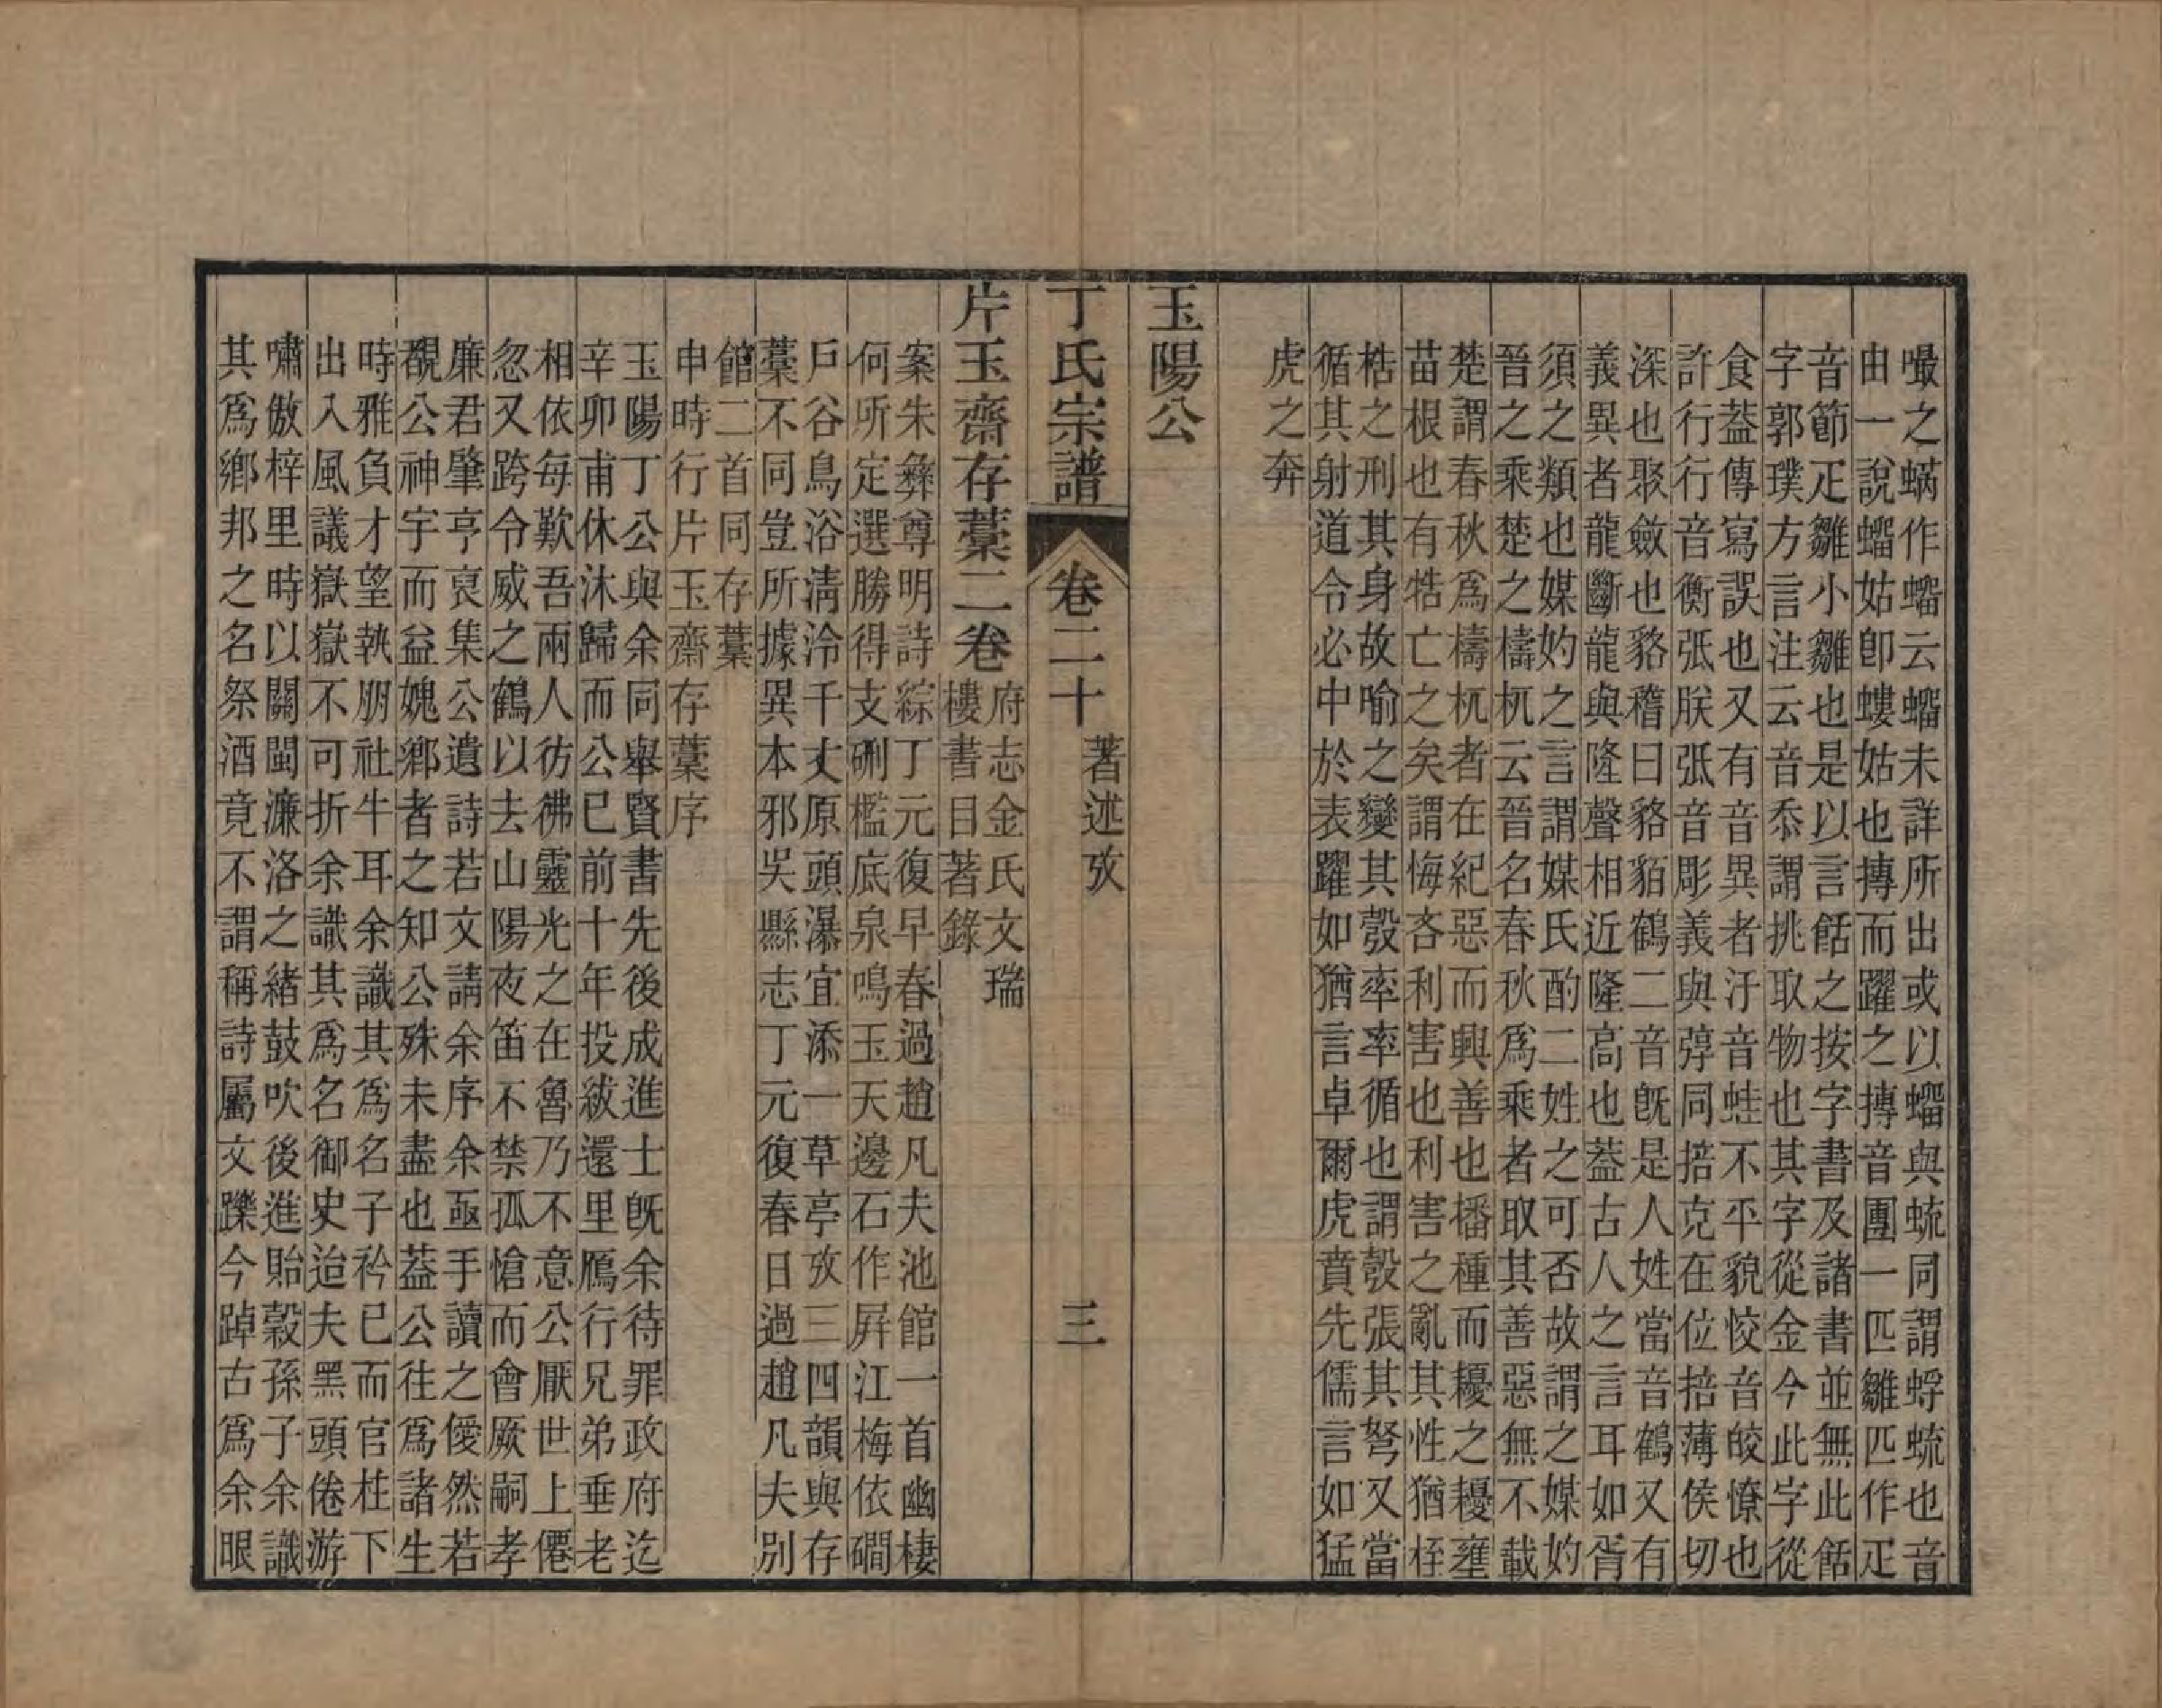 嘬之蝺作蠝云蠝未詳所出或以蠝與蟍同謂蜉蟍也音
由一說蠝姑卽螻姑也摶而躍之摶音團一匹雛匹作疋
音節疋雛小雛也是以言餂之按字書及諸書並無此餂
字郭璞方言注云音忝謂挑取物也其字從金今此字從
食葢傳寫誤也又有音異者汙音蛙不平貌恔音皎憭也
許行行音衡張朕張音彫義與弴同掊克在位掊薄侯切
深也聚斂也貉稽曰貉貊鶴二音旣是人姓當音鶴又有
義異者龍斷龍與隆聲相近隆高也葢古人之言耳如胥
須之類也媒妁之言謂媒氏酌二姓之可否故謂之媒妁
晉之乘楚之檮杌云晉名春秋爲乘者取其善惡無不載
楚謂春秋爲檮杌者在紀惡而興善也播種而耰之耰壅
苗根也有牿亡之矣謂悔吝利害也利害之亂其性猶桎
梏之刑其身故喻之變其彀率率循也謂彀張其弩又當
循其射道令必中於表躍如猶言卓爾虎賁先儒言如猛
虎之奔
玉陽公
丁氏宗譜 卷二十 著述攷 三
片玉齋存藳二卷 府志金氏文瑞
樓書目著錄
案朱彝尊明詩綜丁元復早春過趙凡夫池館一首幽棲
何所定選勝得支硎檻底泉鳴玉天邊石作屛江梅依磵
戶谷鳥浴淸泠千丈原頭瀑宜添一草亭攷三四韻與存
藳不同豈所據異本邪吳縣志丁元復春日過趙凡夫別
館二首同存藳
申時行片玉齋存藳序
玉陽丁公與余同舉賢書先後成進士旣余待罪政府迄
辛卯甫休沐歸而公巳前十年投紱還里鴈行兄弟垂老
相依每歎吾兩人彷彿靈光之在魯乃不意公厭世上僊
忽又跨令威之鶴以去山陽夜笛不禁孤愴而會厥嗣孝
廉君肇亨裒集公遺詩若文請余序余亟手讀之僾然若
覩公神宇而益媿鄉者之知公殊未盡也葢公往爲諸生
時雅負才望執朋社牛耳余識其爲名子衿已而官柱下
出入風議嶽嶽不可折余識其爲名御史迨夫黑頭倦游
嘯傲梓里時以關閩濂洛之緒鼓吹後進貽穀孫子余識
其爲鄉邦之名祭酒竟不謂稱詩屬文躒今踔古爲余眼